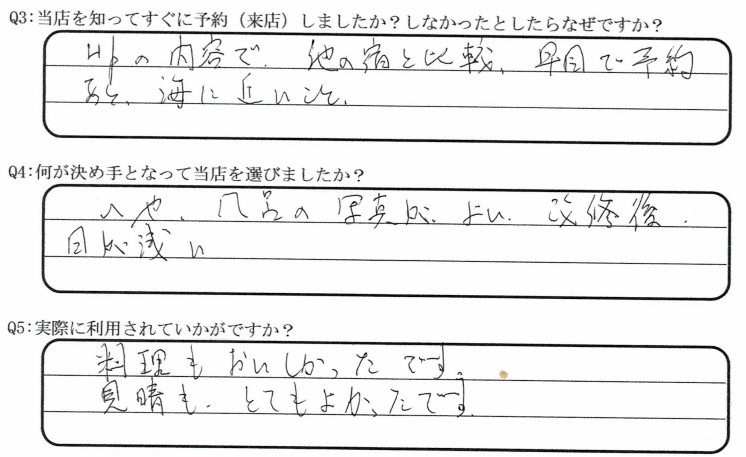 Q3:当店を知ってすぐに予約（来店）しましたか？しなかったとしたらなぜですか？
Hpの内容で、他の宿と比較、早目で予約
あと、海に近いこと、
Q4:何が決め手となって当店を選びましたか？
へや、風呂の写真が、よい、改修後、
日が浅い
Q5:実際に利用されていかがですか？
料理もおいしかったです。
見晴も、とてもよかったです。